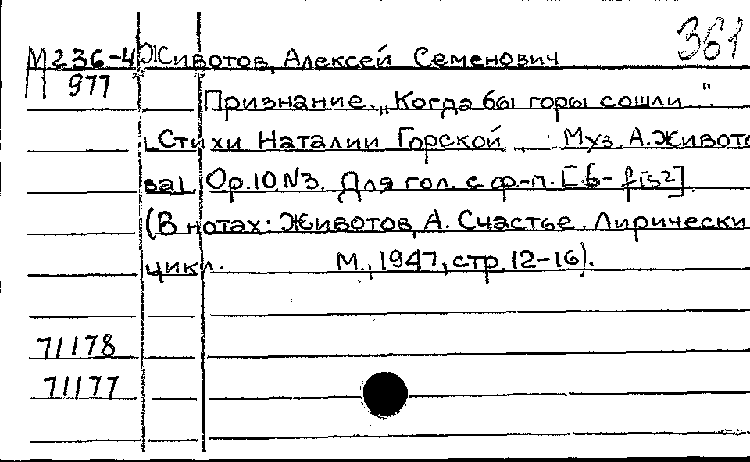 361
М236-4 Животов, Алексей Семенович
977
Признание. „Когда бы горы сошли..."
Стихи Наталии Горской. Муз. А. Живото
ва. Ор.10, N3. Для гол. с ф-п. [b-fis2]
(В нотах: Животов, А. Счастье. Лирически
цикл. М., 1947, стр. 12-16).
71178
71177